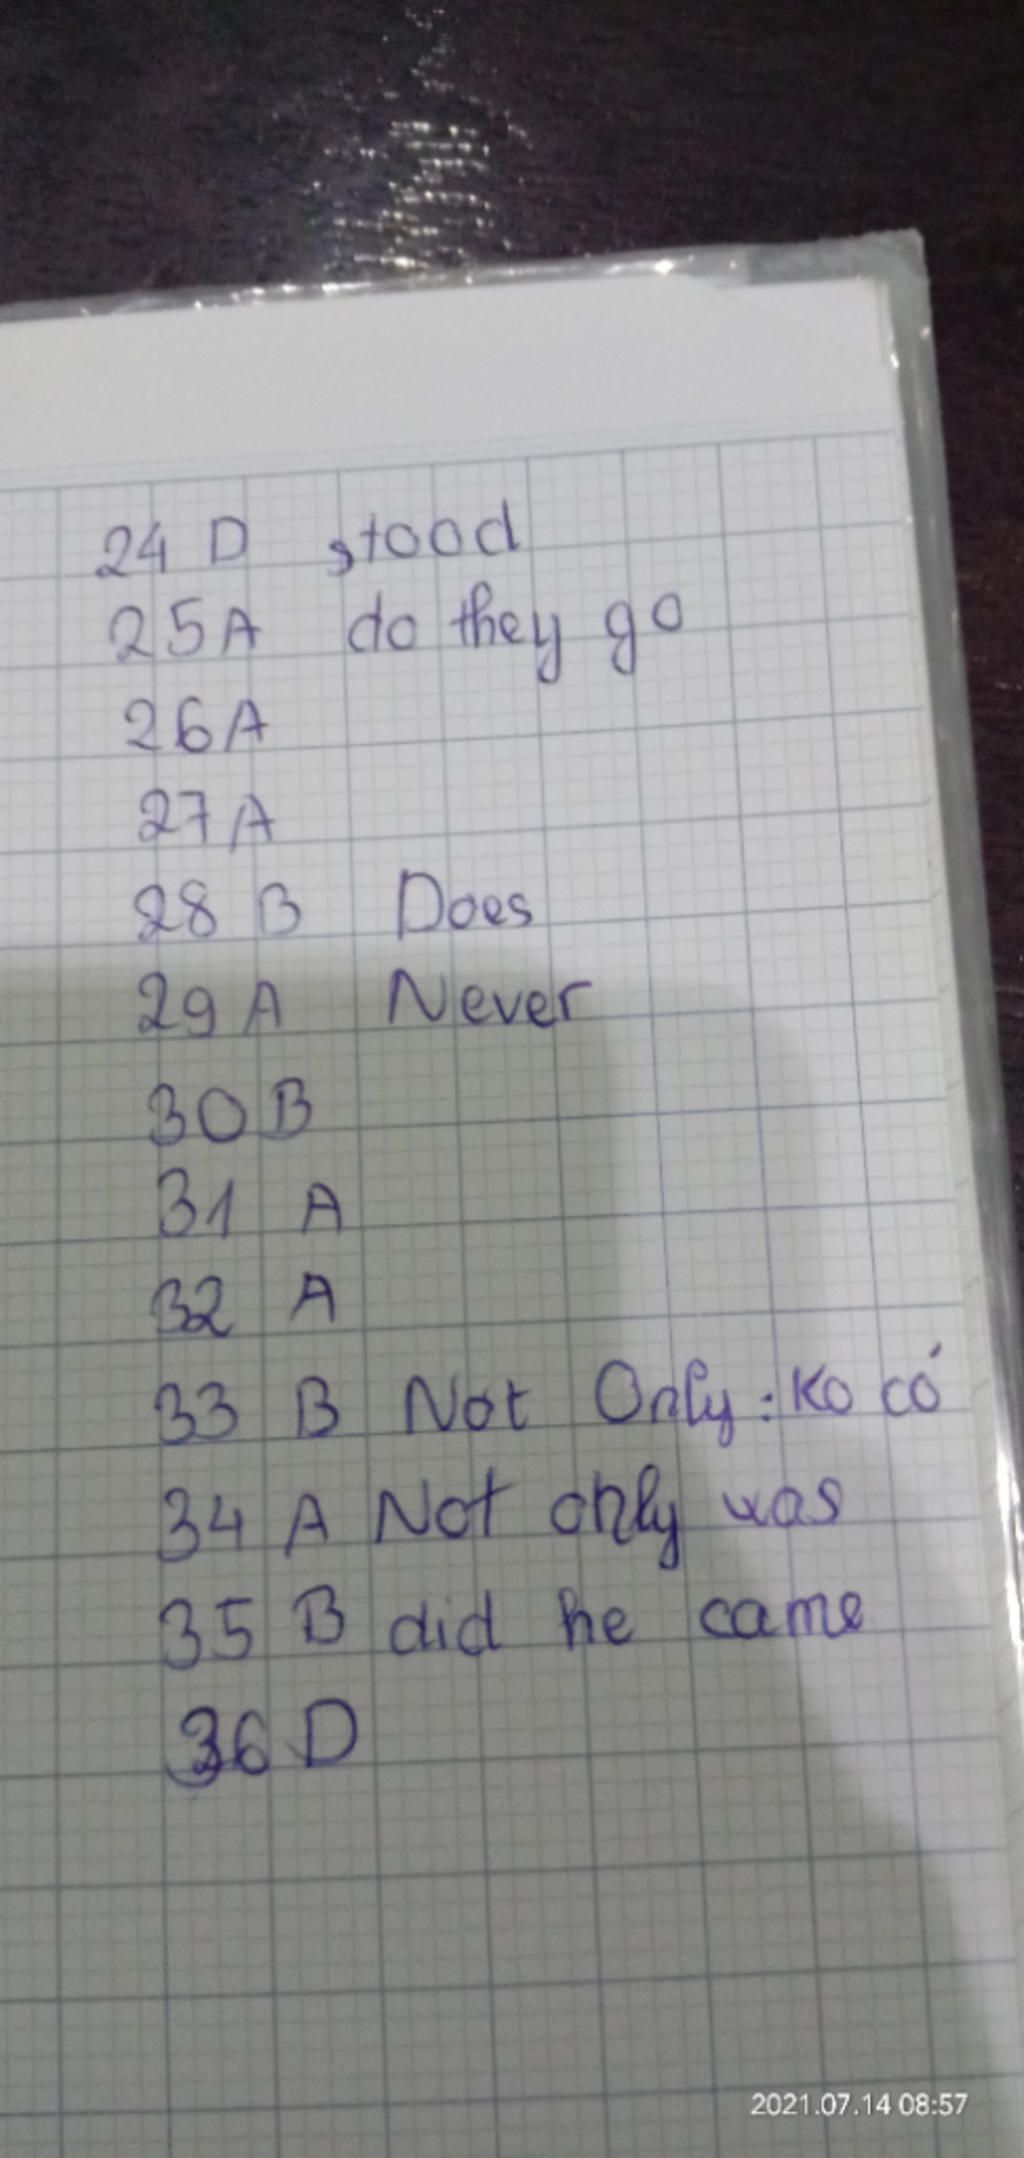 24 D stood
25 A do they go
26 A
27 A
28 B Does
29 A Never
30 B
31 A
32 A
33 B Not Only : Ko có
34 A Not only was
35 B did he came
36 D
2021.07.14 08:57